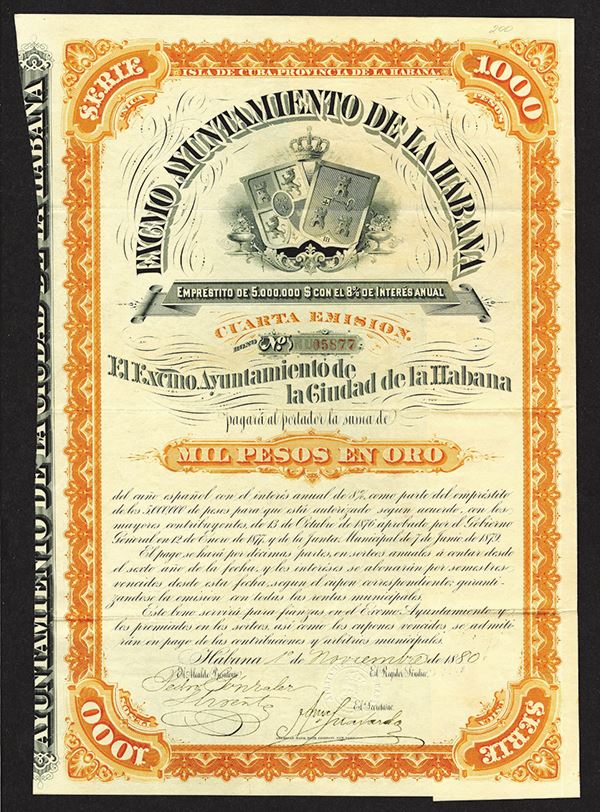 200
SERIE
UNICA
ISLA DE CUBA, PROVINCIA DE LA HABANA.
1000
PESOS
EXCMO AYUNTAMIENTO DE LA HABANA
EMPRÉSTITO DE 5.000.000 $ CON EL 8% DE INTERÉS ANUAL
CUARTA EMISION.
BONO Nº 05877
El Excmo. Ayuntamiento de
la Ciudad de la Habana
pagará al portador la suma de
MIL PESOS EN ORO
del cuño español con el interés anual de 8%, como parte del empréstito
de los 5.000.000 de pesos para que está autorizado segun acuerdo con los
mayores contribuyentes, de 13 de Octubre de 1876 aprobado por el Gobierno
General en 12 de Enero de 1877, y de la Junta Municipal de 7 de junio de 1879.
El pago se hará por décimas partes, en sorteos anuales á contar desde
el sexto año de la fecha, y los intéreses se abonarán por semestres
vencidos desde esta fecha, segun el cupon correspondiente; garanti-
zandose la emision con todas las rentas municipales.
Este bono servirá para fianzas en el Excmo. Ayuntamiento y
los premiados en los sorteos, así como los cupones vencidos se admiti-
rán en pago de las contribuciones y arbitrios municipales.
Habana 1º de Noviembre de 1880
El Alcalde Presidente
El Regidor Síndico
Pedro Gonzalez
Llorente
El Secretario
AMERICAN BANK NOTE COMPANY, NEW YORK
1000
SERIE
AYUNTAMIENTO DE LA CIUDAD DE LA HABANA